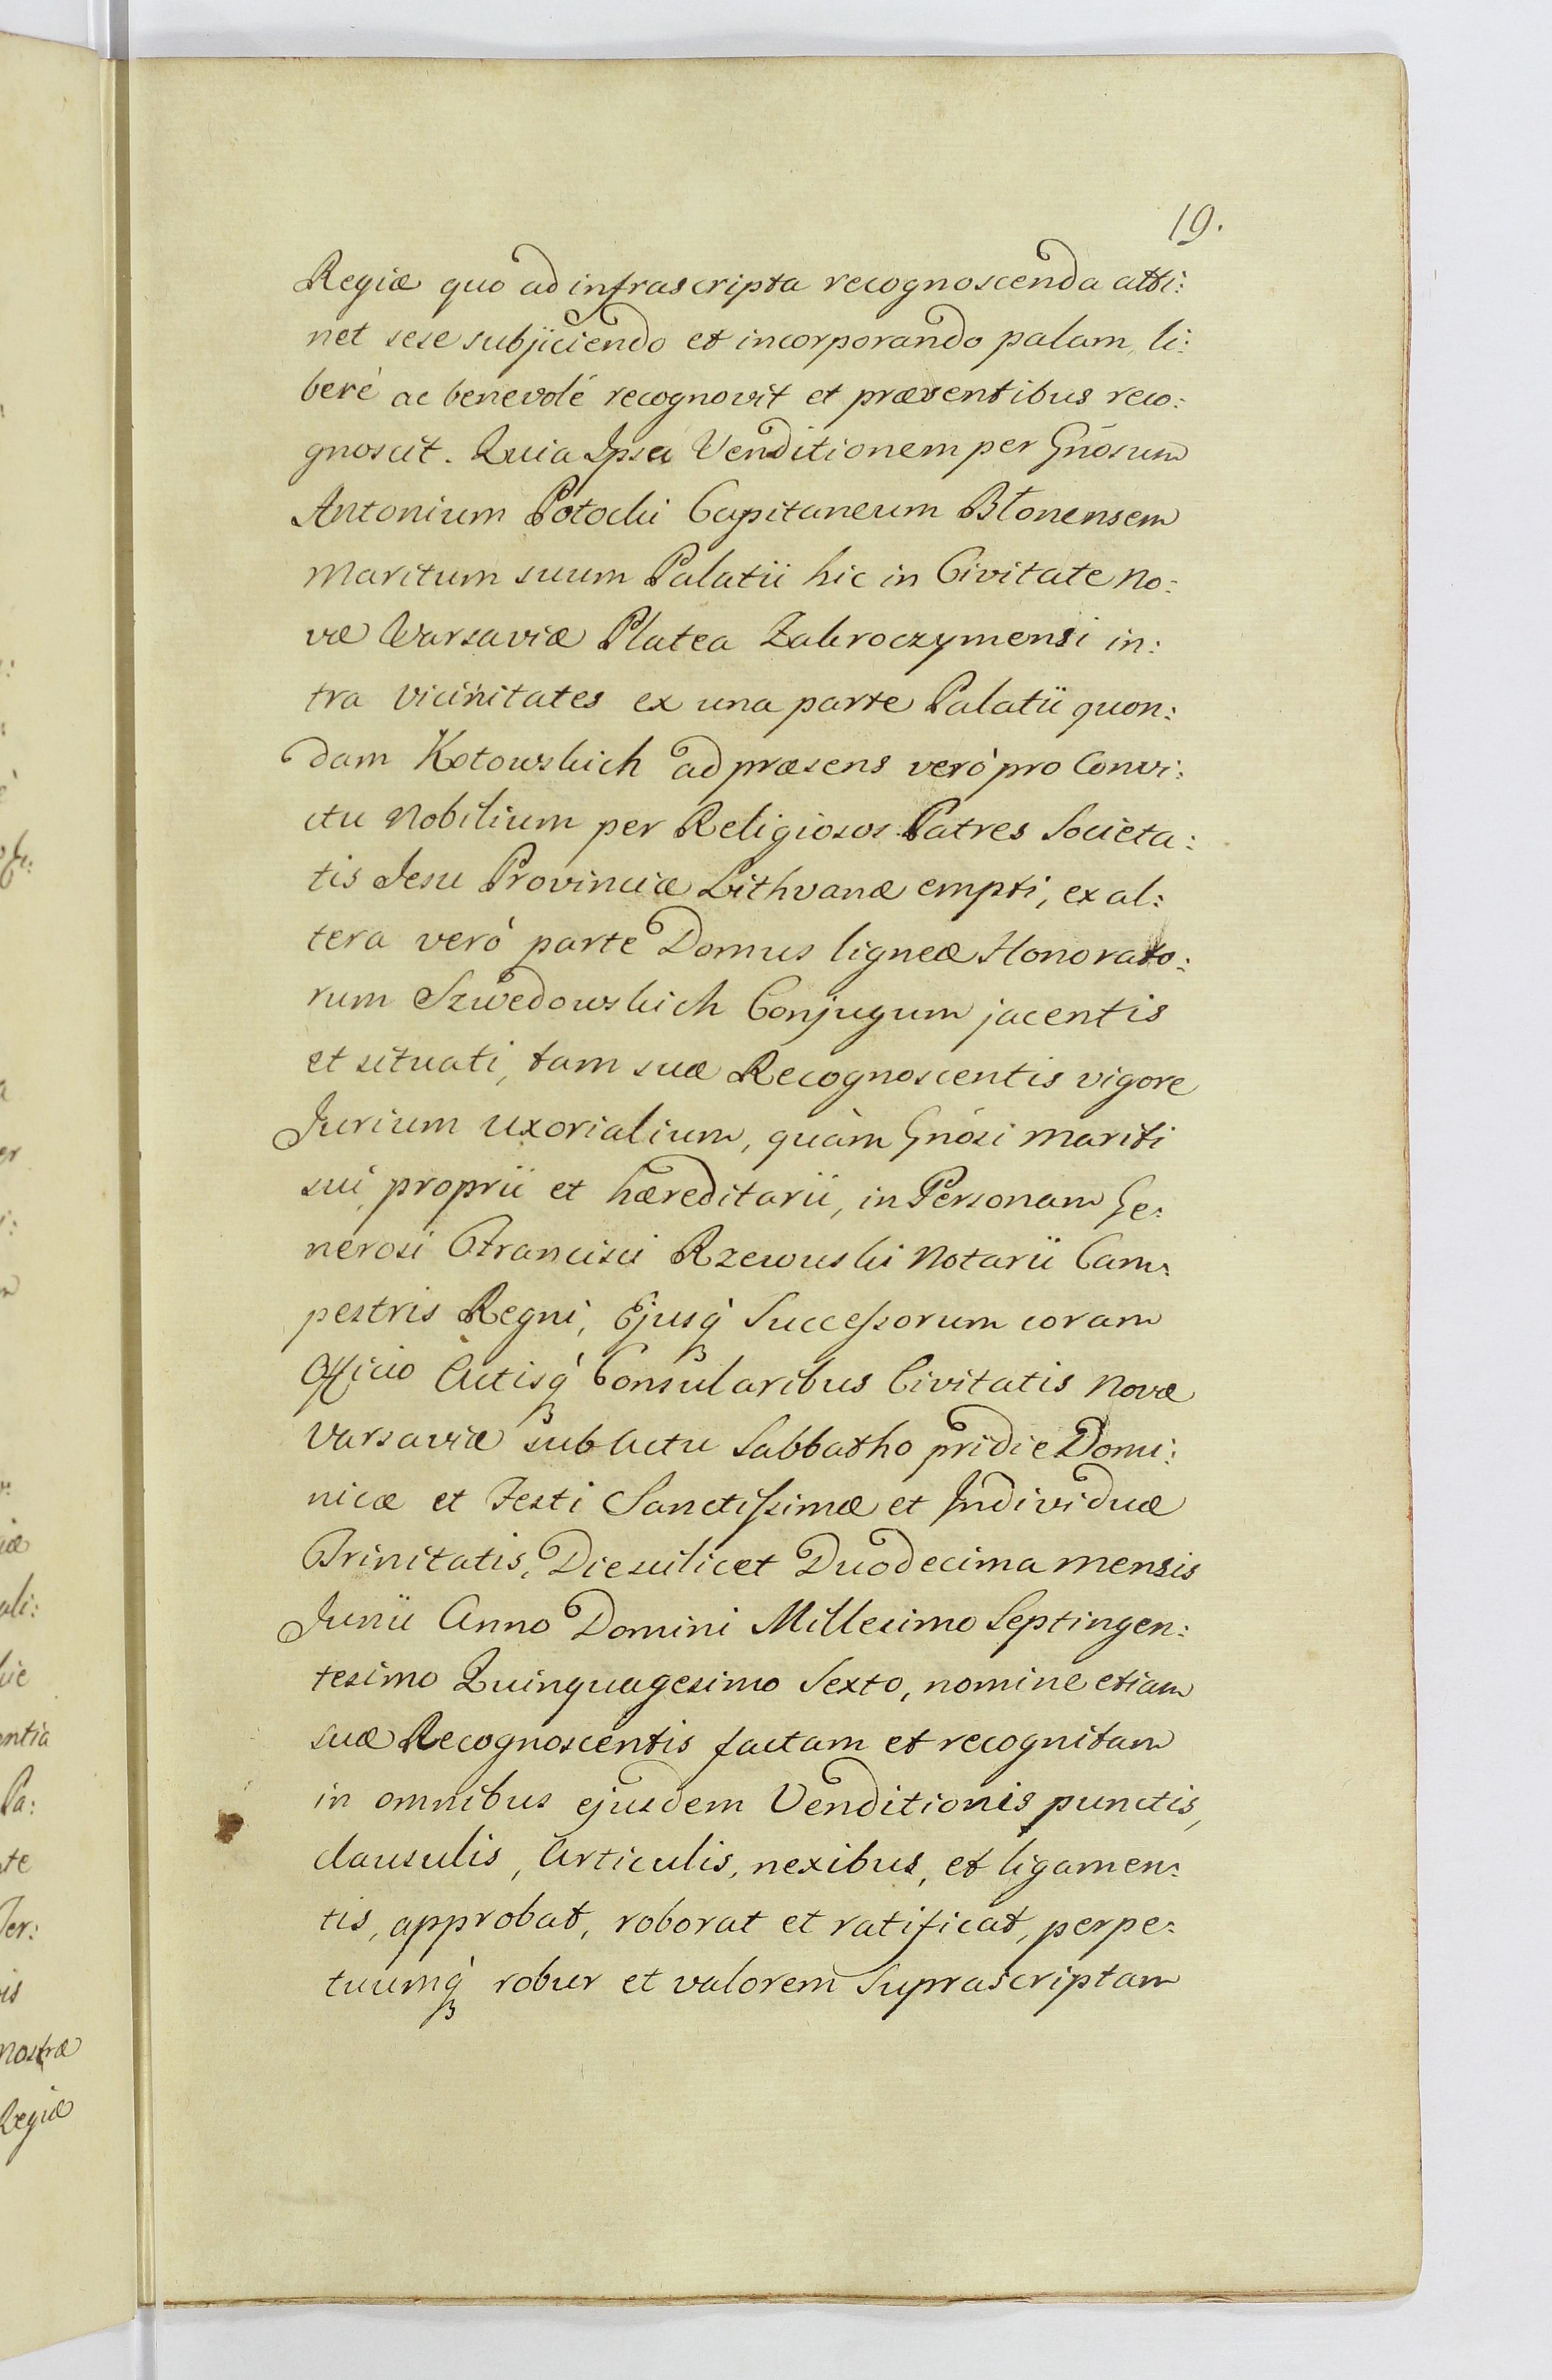 19.
Regiæ quo ad infrascripta recognoscenda atti:
net sese subjiciendo et incorporando palam, li:
berè ac benevolé recognovit et præsentibus reco:
gnoscit. Quia Ipsa Venditionem per Gnõsum
Antonium Potocki Capitaneum Błonensem
Maritum suum Palatii hic in Civitate No:
væ Varsaviæ Platea Zakroczymensi in:
tra vicinitates ex una parte Palatii quon:
dam Kotowskich ad præsens verò pro Convi:
ctu Nobilium per Religiosos Patres Societa:
tis Jesu Provinciæ Lithvanæ empti, ex al:
tera verò parte Domus ligneæ Honorato:
rum Szwedowskich Conjugum jacentis
et situati, tam suæ Recognoscentis vigore
Jurium uxorialium, quàm Gnõsi Mariti
sui proprii et hæreditarii, in Personam Ge:
nerosi Francisci Rzewuski Notarii Cam:
pestris Regni, Ejusq́ꝫ Successorum coram
Officio Actisq́ꝫ Consularibus Civitatis Novæ
Varsaviæ sub Actu Sabbatho pridie Domi:
nicæ et Festi Sanctissimæ et Individuæ
Trinitatis, Die scilicet Duodecima Mensis
Junii Anno Domini Millesimo Septingen:
tesimo Quinquagesimo Sexto, nomine etiam
suæ Recognoscentis factam et recognitam
in omnibus ejusdem Venditionis punctis,
clausulis, Articulis, nexibus, et ligamen:
tis, approbat, roborat et ratificat, perpe:
tuumq́ꝫ robur et valorem Suprascriptam
nostræ
Regiæ